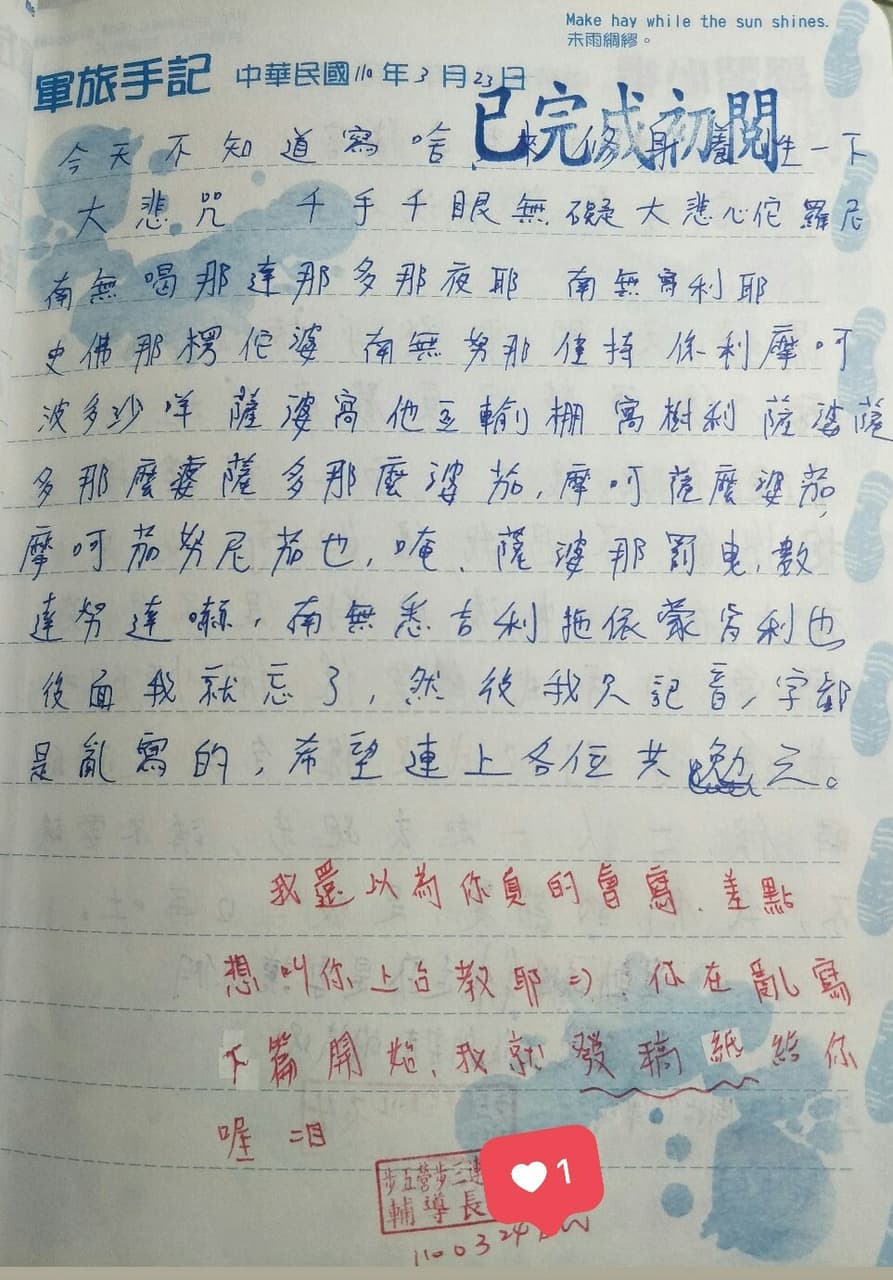 Make hay while the sun shines.
未雨綢繆。
軍旅手記 中華民國110年3月23日
已完成初閱
今天不知道寫啥,來修身養性一下
大悲咒 千手千眼無礙大悲心佗羅尼
南無喝那達那多那夜耶 南無窩利耶
史佛那楞佗婆 南無努那僅持 你利摩呵
波多玅咩 薩婆窩他互輸棚窩樹利 薩婆薩
多那麼婆薩多那麼婆茄,摩呵薩麼婆茄,
摩呵茄努尼茄也,唵、薩婆那罰曳,數
達努達嚇,南無悉吉利拖依蒙肯利也
後面我就忘了,然後我只記音,字都
是亂寫的,希望連上各位共勉之。
我還以為你真的會寫、差點
想叫你上台教耶=)、你在亂寫
下篇開始、我就發稿紙給你
喔 =目
步五營步三連
輔導長
1100324
1